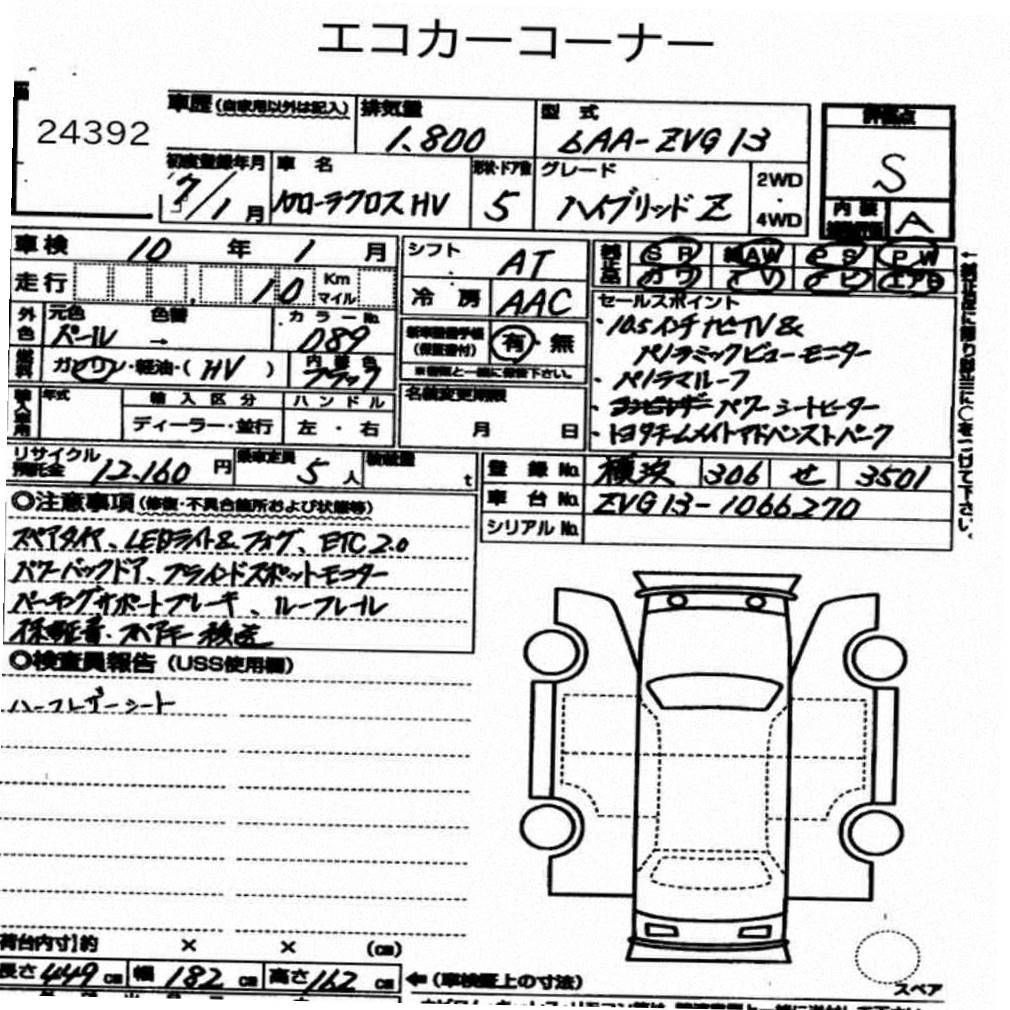 エコカーコーナー
24392
車歴(自家用以外は記入) 排気量 型式 評価点
1.800 6AA-ZVG13 S
初度登録年月 車名 形状・ドア数 グレード 2WD・4WD 内装 A
7/1月 カローラクロスHV 5 ハイブリッドZ
車検 10年1月 シフト AT 純正品 SR AW PS PW
走行 10 Km マイル 冷房 AAC カワ TV ナビ エアB
外色 元色 色替 カラーNo. セールスポイント
パール → 089 ・10.5インチナビTV&
(保証書付) 有・無 パノラミックビューモニター
燃料 ガソリン・軽油・(HV) 内装色 ブラック ・パノラマルーフ
輸入車用 年式 輸入区分 ハンドル 名義変更期限 パワーシートヒーター
ディーラー・並行 左・右 月 日 ・トヨタチームメイトアドバンストパーク
リサイクル預託金 12.160円 乗車定員 5人 積載量 t
登録No. 横浜 306 せ 3501
車台No. ZVG13-1066270
シリアルNo.
◎注意事項(修復・不具合箇所および状態等)
スペアタイヤ、LEDライト&フォグ、ETC2.0
パワーバックドア、ブラインドスポットモニター
パーキングサポートブレーキ、ルーフレール
保証書・スペアキー後送
◎検査員報告(USS使用欄)
ハーフレザーシート
荷台内寸]約 × × (cm)
長さ449cm 幅182cm 高さ162cm ←(車検証上の寸法)
スペア